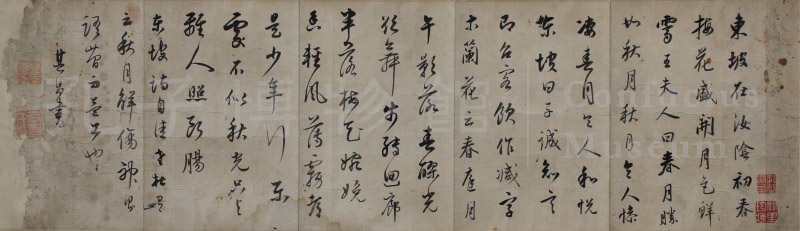 東坡在汝陰初春
梅花盛開月色鮮
霽王夫人曰春月勝
如秋月秋月令人慘
凄春月令人和悅
東坡曰子誠知言
即召客飲作減字
木蘭花云春庭月
午影落春醪光
欲舞步轉迴廊
半落梅花婉娩
香輕風薄霧都
是少年行樂
處不似秋光只與
離人照斷腸
東坡詩自注老杜
云秋月解傷神
語簡而益工也
其昌書
Confucius
Museum